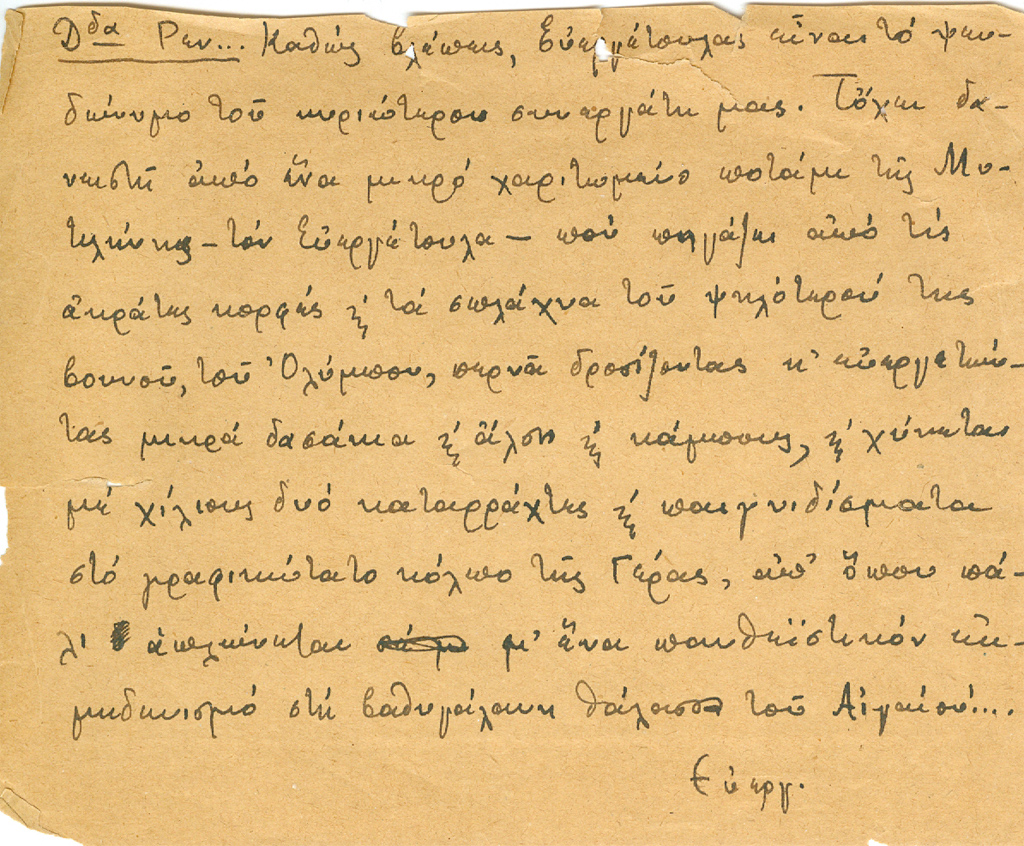 Δδα Ρεν... Καθώς βλέπεις, Εὐεργέτουλας εἶναι τό ψευ-
δώνυμο τοῦ κυριώτερου συνεργάτη μας. Τὄχει δα-
νειστῆ ἀπό ἕνα μικρό χαριτωμένο ποτάμι τῆς Μυ-
τιλήνης – τόν Εὐεργέτουλα – πού πηγάζει ἀπό τίς
ἀκράτες κορφές ϗ τά σπλάχνα τοῦ ψηλότερού της
βουνοῦ, τοῦ Ὀλύμπου, περνᾶ δροσίζοντας κ' εὐεργετών-
τας μικρά δασάκια ϗ ἄλση ϗ κάμπους, ϗ χύνεται
μέ χίλιους δυό καταρράχτες ϗ παιγνιδίσματα
στό γραφικώτατο κόλπο τῆς Γέρας, ἀπ' ὅπου πά-
λι ἁπλώνεται μ' ἕνα πανθεϊστικόν ἐκ-
μηδενισμό στή βαθυγάλανη θάλασσα τοῦ Αἰγαίου....
Εὐεργ.